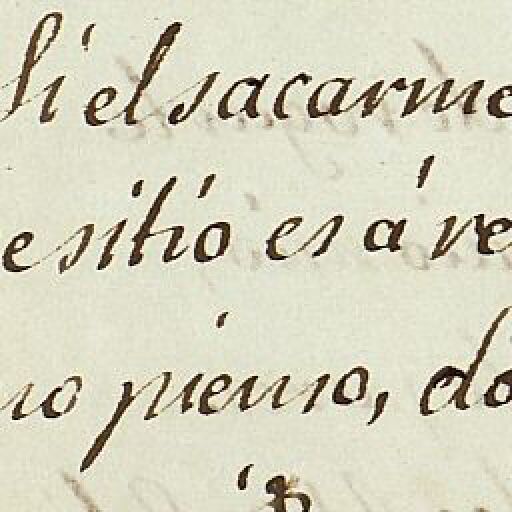 Si el sacarme
e sitió es á re
no pienso, do